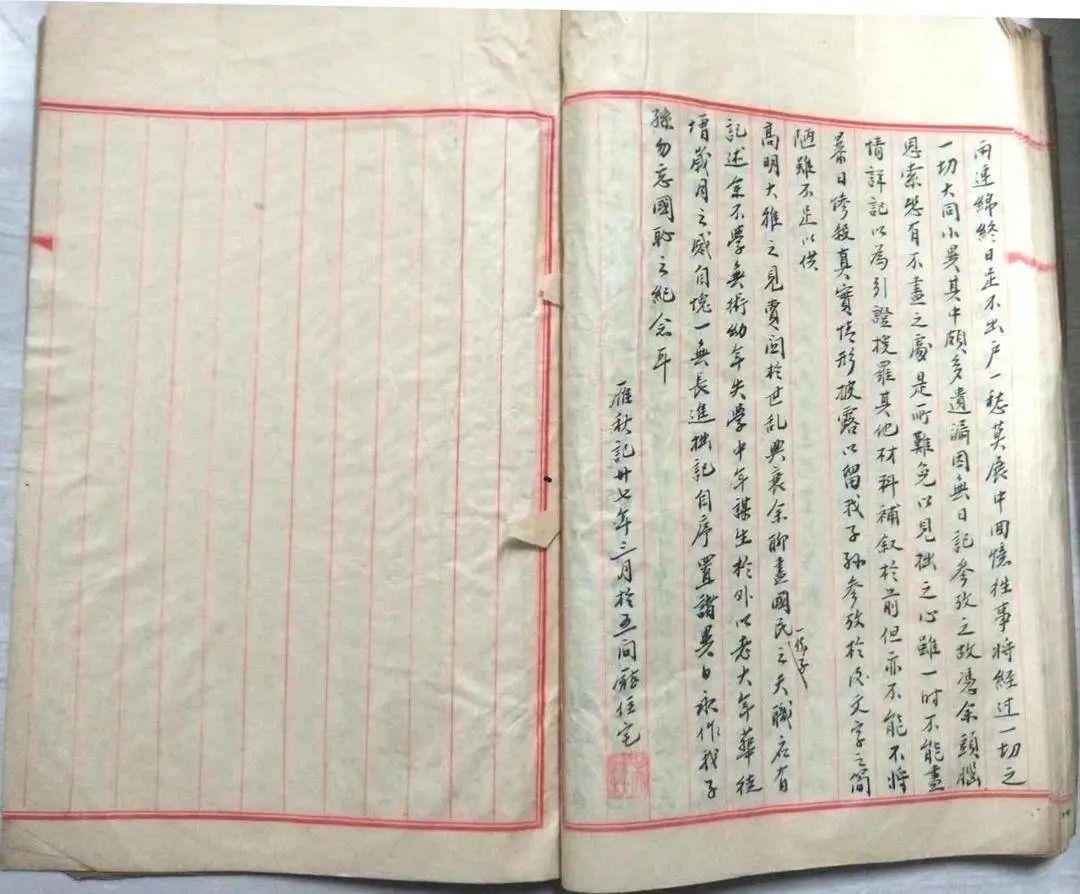 雨連綿終日足不出戶一愁莫展中回憶往事將經过一切之
一切大同小異其中頗多遺漏因無日記參攷之故憑余頭腦
思索恐有不盡之處是所難免以見拙之心雖一时不能盡
情詳記以為引證搜羅其他材料補叙於前但亦不能不將
暴日慘殺真實情形披露以留我子孙參攷於後文字之簡
陋雖不足以供
高明大雅之見賣因於世乱興衰余聊盡國民一份子之天職应有
記述余不學無術幼年失學中年謀生於外以老大年華徒
增歲月之感自愧一無長進拙記自序置諸異日永作我子
孫勿忘國恥之紀念耳
雁秋記廿七年三月於五间廳住宅